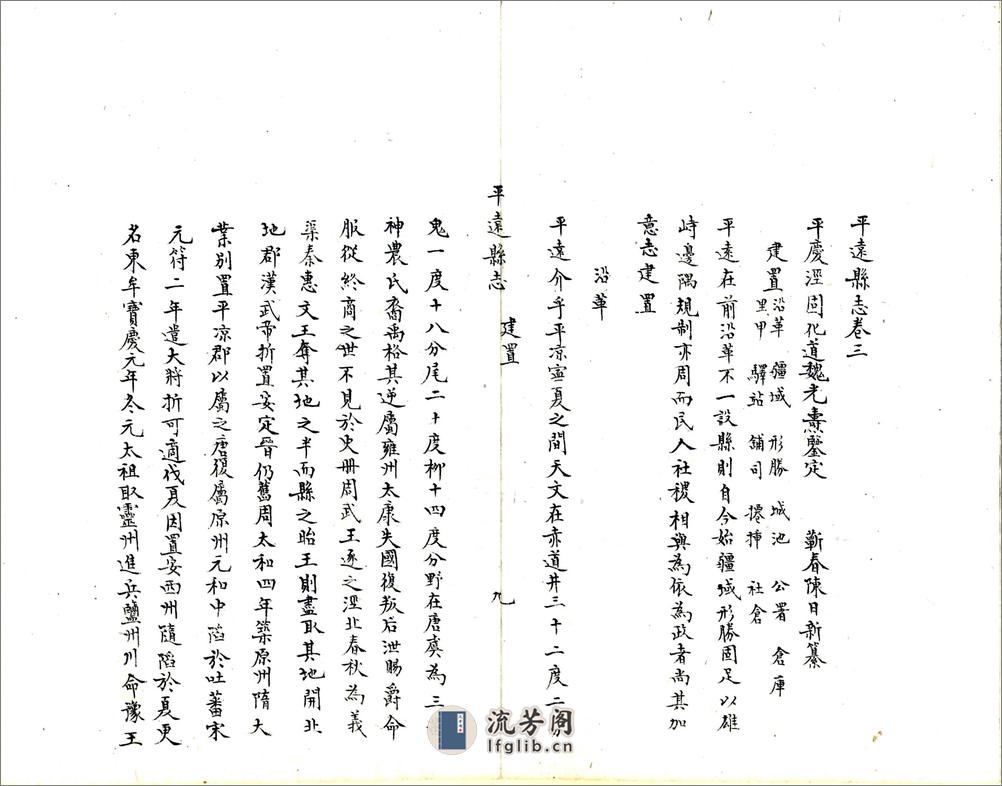 平遠縣志卷三
平慶涇固化道魏光燾鑒定　蘄春陳日新纂
建置 沿革 疆域 形勝 城池 公署 倉庫
里甲 驛站 舖司 捲 社倉
平遠在前沿革不一設縣則自今始疆域形勝固足以雄
峙邊隅規制亦周而民人社稷相與為依為政者尚其加
意志建置
沿革
平遠介乎平凉寧夏之間天文在赤道井三十二度二分
平遠縣志　建置　九
鬼一度十八分尾二十度柳十四度分野在唐虞為三
神農氏裔禹格其逆屬雍州太康失國復叛后泄賜爵命
服從終商之世不見於史册周武王逐之涇北春秋為義
渠秦惠文王奪其地之半而縣之昭王則盡取其地開北
地郡漢武帝折置安定晉仍舊周太和四年築原州隋大
業別置平凉郡以屬之唐復屬原州元和中陷於吐蕃宋
元符二年遣大將折可適伐夏因置安西州隨陷於夏更
名東牟寶慶元年冬元太祖取靈州進兵鹽州川命豫王
流芳阁
lfglib.com